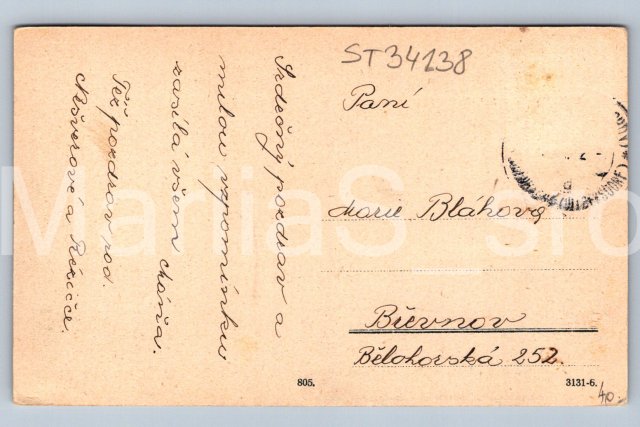 ST34138
Srdečný pozdrav a
milou vzpomínku
zasílá všem
Též pozdrav pod.
a
Paní
Marie Bláhová
Břevnov
Bělohorská 252.
805.
3131-6.
40.
MariiaS_sro